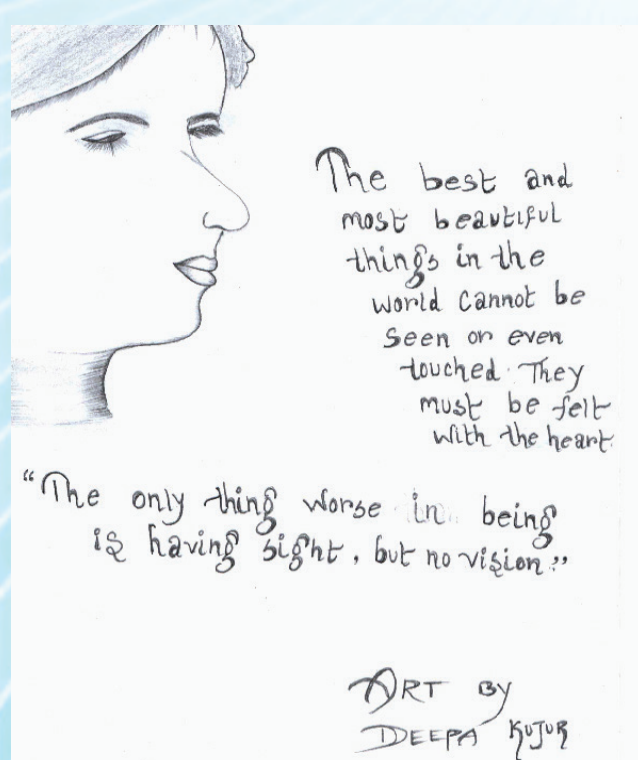 The best and
most beautiful
things in the
world cannot be
seen or even
touched. They
must be felt
with the heart
"The only thing worse in being
is having sight, but no vision."
ART BY
DEEPA KUJUR